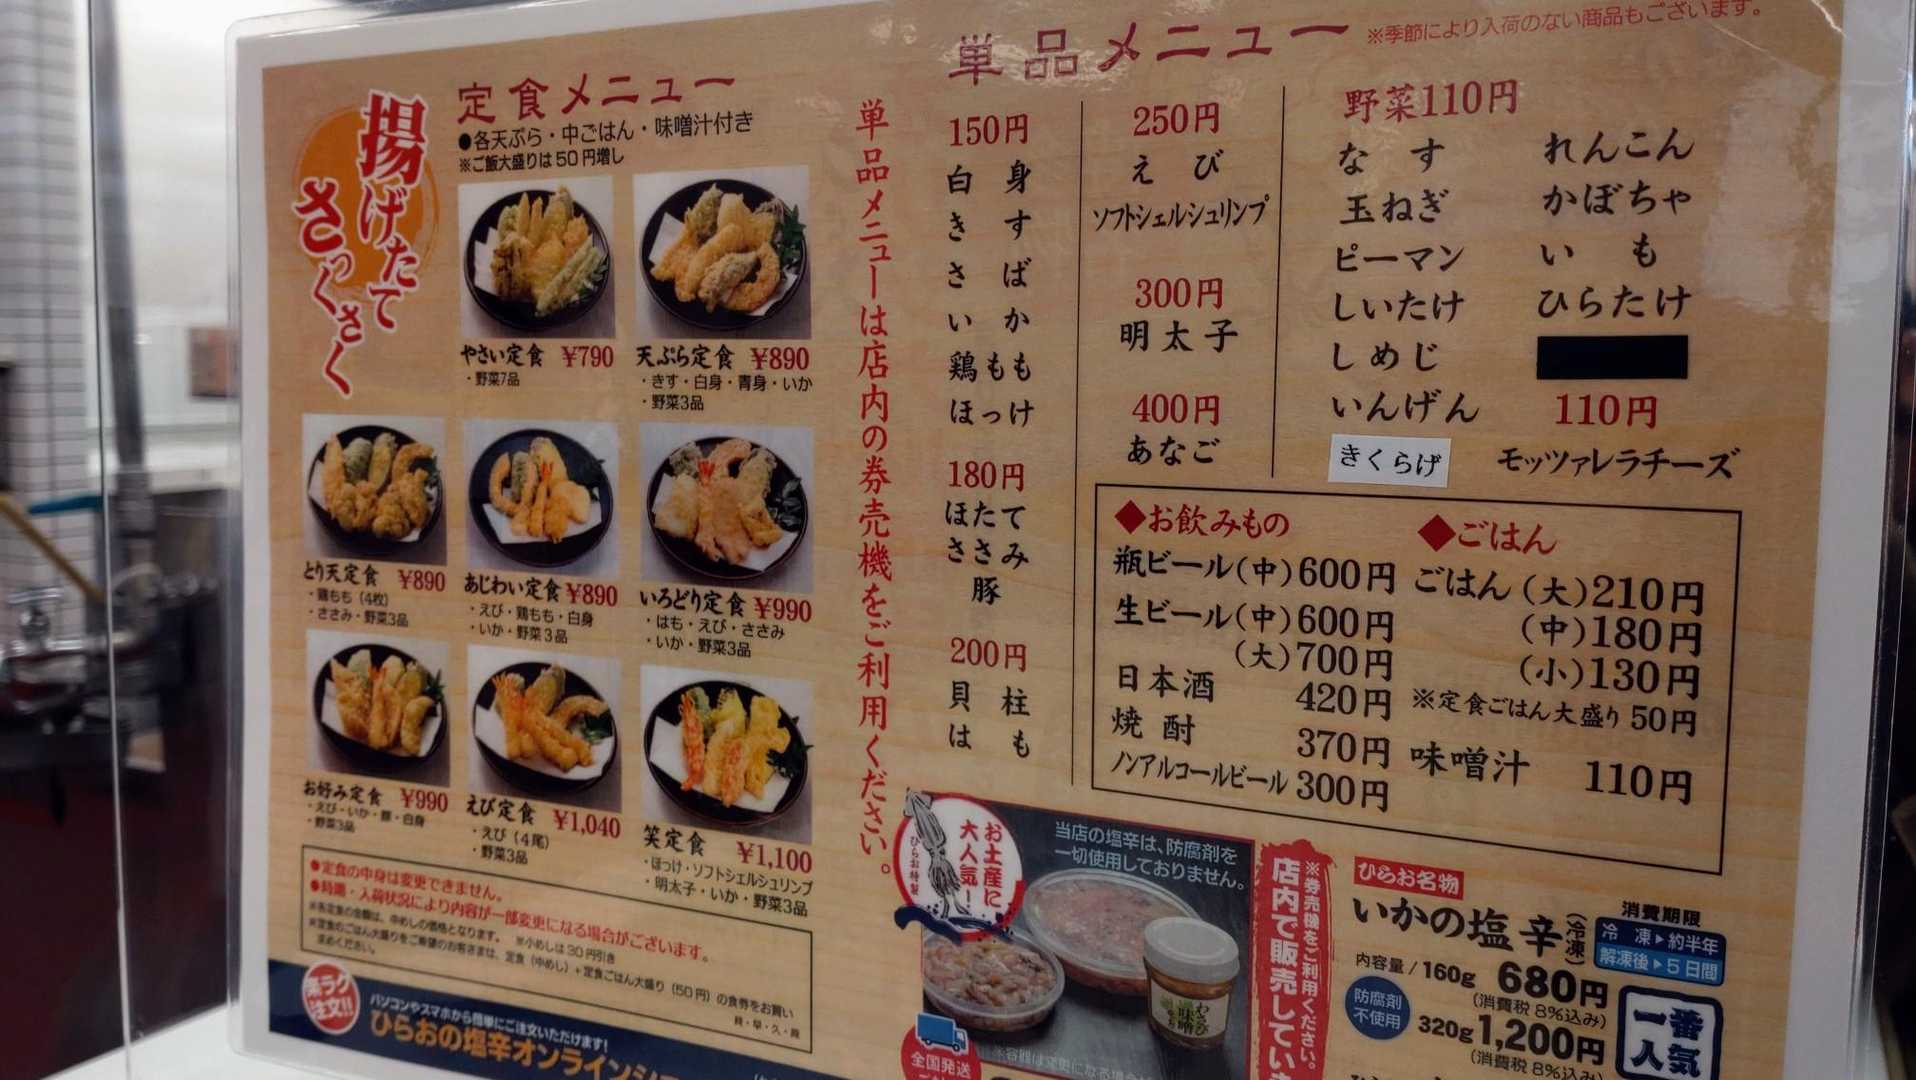 揚げたて
さっくさく
定食メニュー
●各天ぷら・中ごはん・味噌汁付き
※ご飯大盛りは50円増し
やさい定食 ¥790
・野菜7品
天ぷら定食 ¥890
・きす・白身・青身・いか
・野菜3品
とり天定食 ¥890
・鶏もも(4枚)
・ささみ・野菜3品
あじわい定食 ¥890
・えび・鶏もも・白身
・いか・野菜3品
いろどり定食 ¥990
・はも・えび・ささみ
・いか・野菜3品
お好み定食 ¥990
・えび・いか・豚・白身
・野菜3品
えび定食 ¥1,040
・えび(4尾)
・野菜3品
笑定食 ¥1,100
・ほっけ・ソフトシェルシュリンプ
・明太子・いか・野菜3品
●定食の中身は変更できません。
●時期・入荷状況により内容が一部変更になる場合がございます。
※各定食の金額は、中めしの価格となります。 ※小めしは30円引き
※定食のごはん大盛りをご希望のお客さまは、定食(中めし)+定食ごはん大盛り(50円)の食券をお買い
求めください。
楽ラク
注文!!
パソコンやスマホから簡単にご注文いただけます!
ひらおの塩辛オンライン
単品メニューは店内の券売機をご利用ください。
単品メニュー
※季節により入荷のない商品もございます。
150円
白身
きす
さば
いか
鶏もも
ほっけ
180円
ほたて
ささみ
豚
200円
貝柱
はも
250円
えび
ソフトシェルシュリンプ
300円
明太子
400円
あなご
野菜110円
なす
れんこん
玉ねぎ
かぼちゃ
ピーマン
いも
しいたけ
ひらたけ
しめじ
いんげん
きくらげ
110円
モッツァレラチーズ
◆お飲みもの
瓶ビール(中)600円
生ビール(中)600円
(大)700円
日本酒 420円
焼酎 370円
ノンアルコールビール 300円
◆ごはん
ごはん(大)210円
(中)180円
(小)130円
※定食ごはん大盛り 50円
味噌汁 110円
お土産に
大人気!
ひらお特製
当店の塩辛は、防腐剤を
一切使用しておりません。
わさび
味噌
※容器は変更になる場合
全国発送
※券売機をご利用ください。
店内で販売してい
ひらお名物
いかの塩辛(冷凍)
消費期限
冷凍▶約半年
解凍後▶5日間
内容量/160g 680円
(消費税8%込み)
防腐剤
不使用
320g 1,200円
(消費税8%込み)
一番
人気